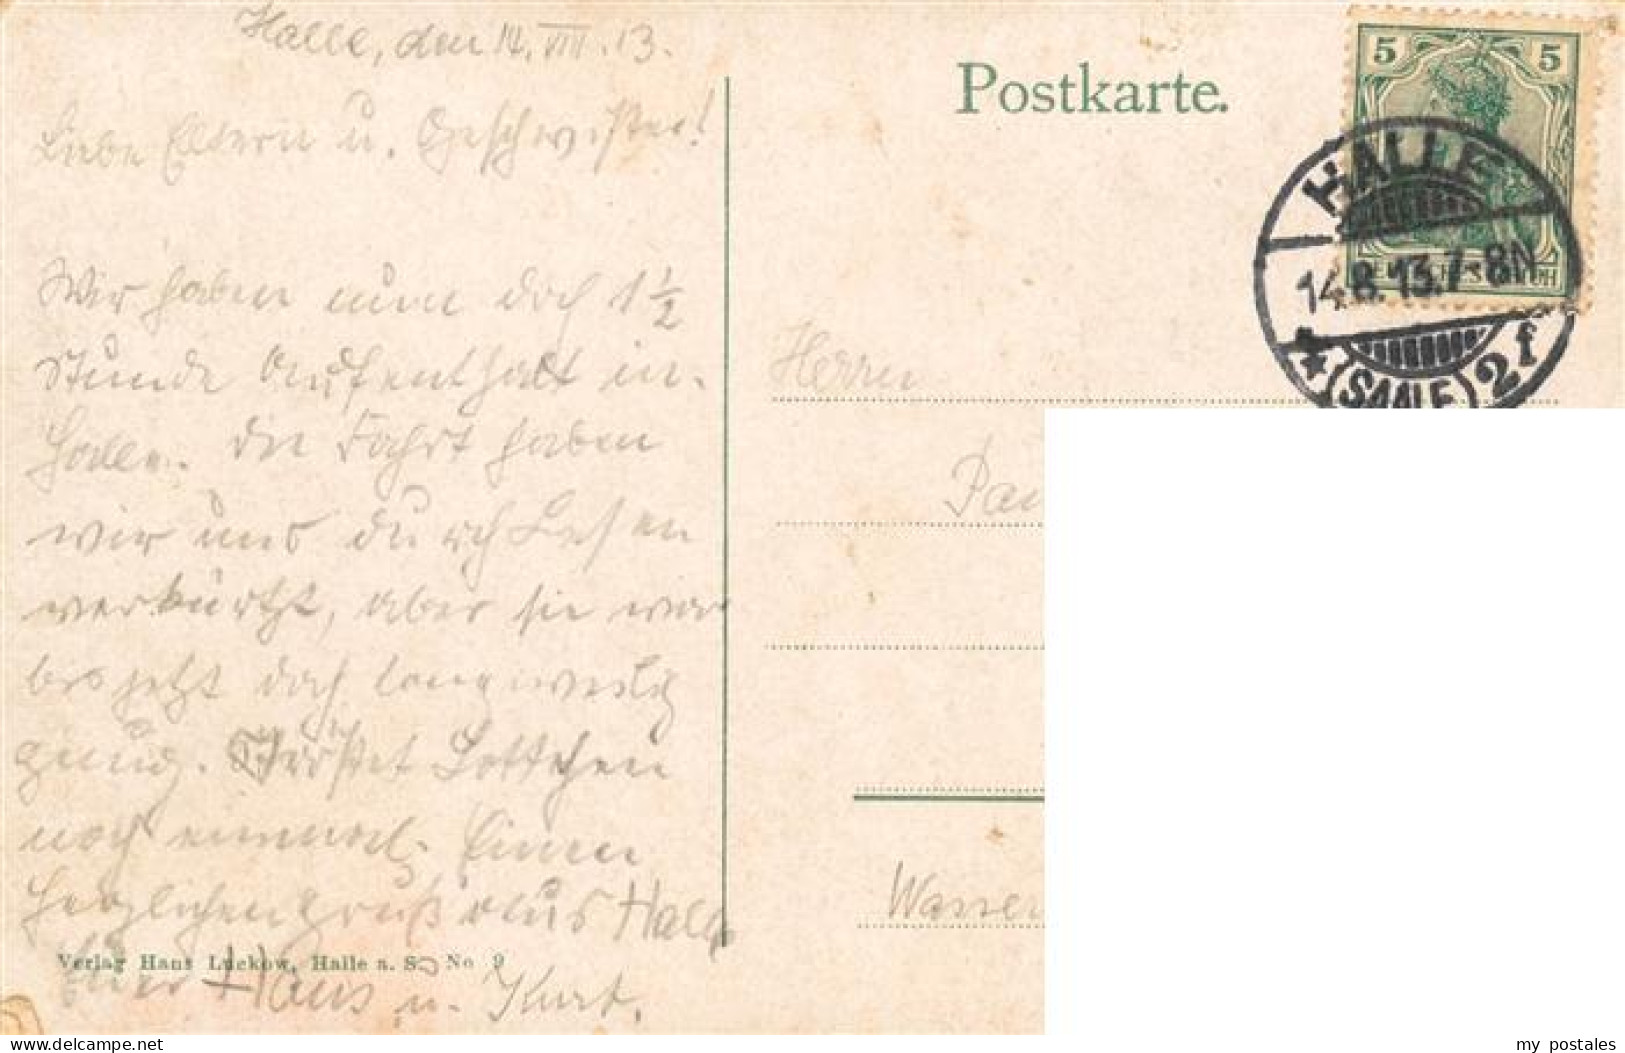 Halle, den 14. VIII. 13.
Liebe Eltern u. Geschwister!
Wir haben nun doch 1 1/2
Stunde Aufenthalt in
Halle. Die Fahrt haben
wir uns durch Lesen
verkürzt, aber sie war
bis jetzt doch langweilig
genug. Tröstet Lottchen
noch einmal. Einen
herzlichen Gruß aus Halle
Euer Hans u. Kurt.
Verlag Hans Luckow, Halle a. S. No 9
Postkarte.
5 5
HALLE
14.8.13.7-8N
(SAALE) 2f
Herrn
Wasser
my postales
delcampe.net